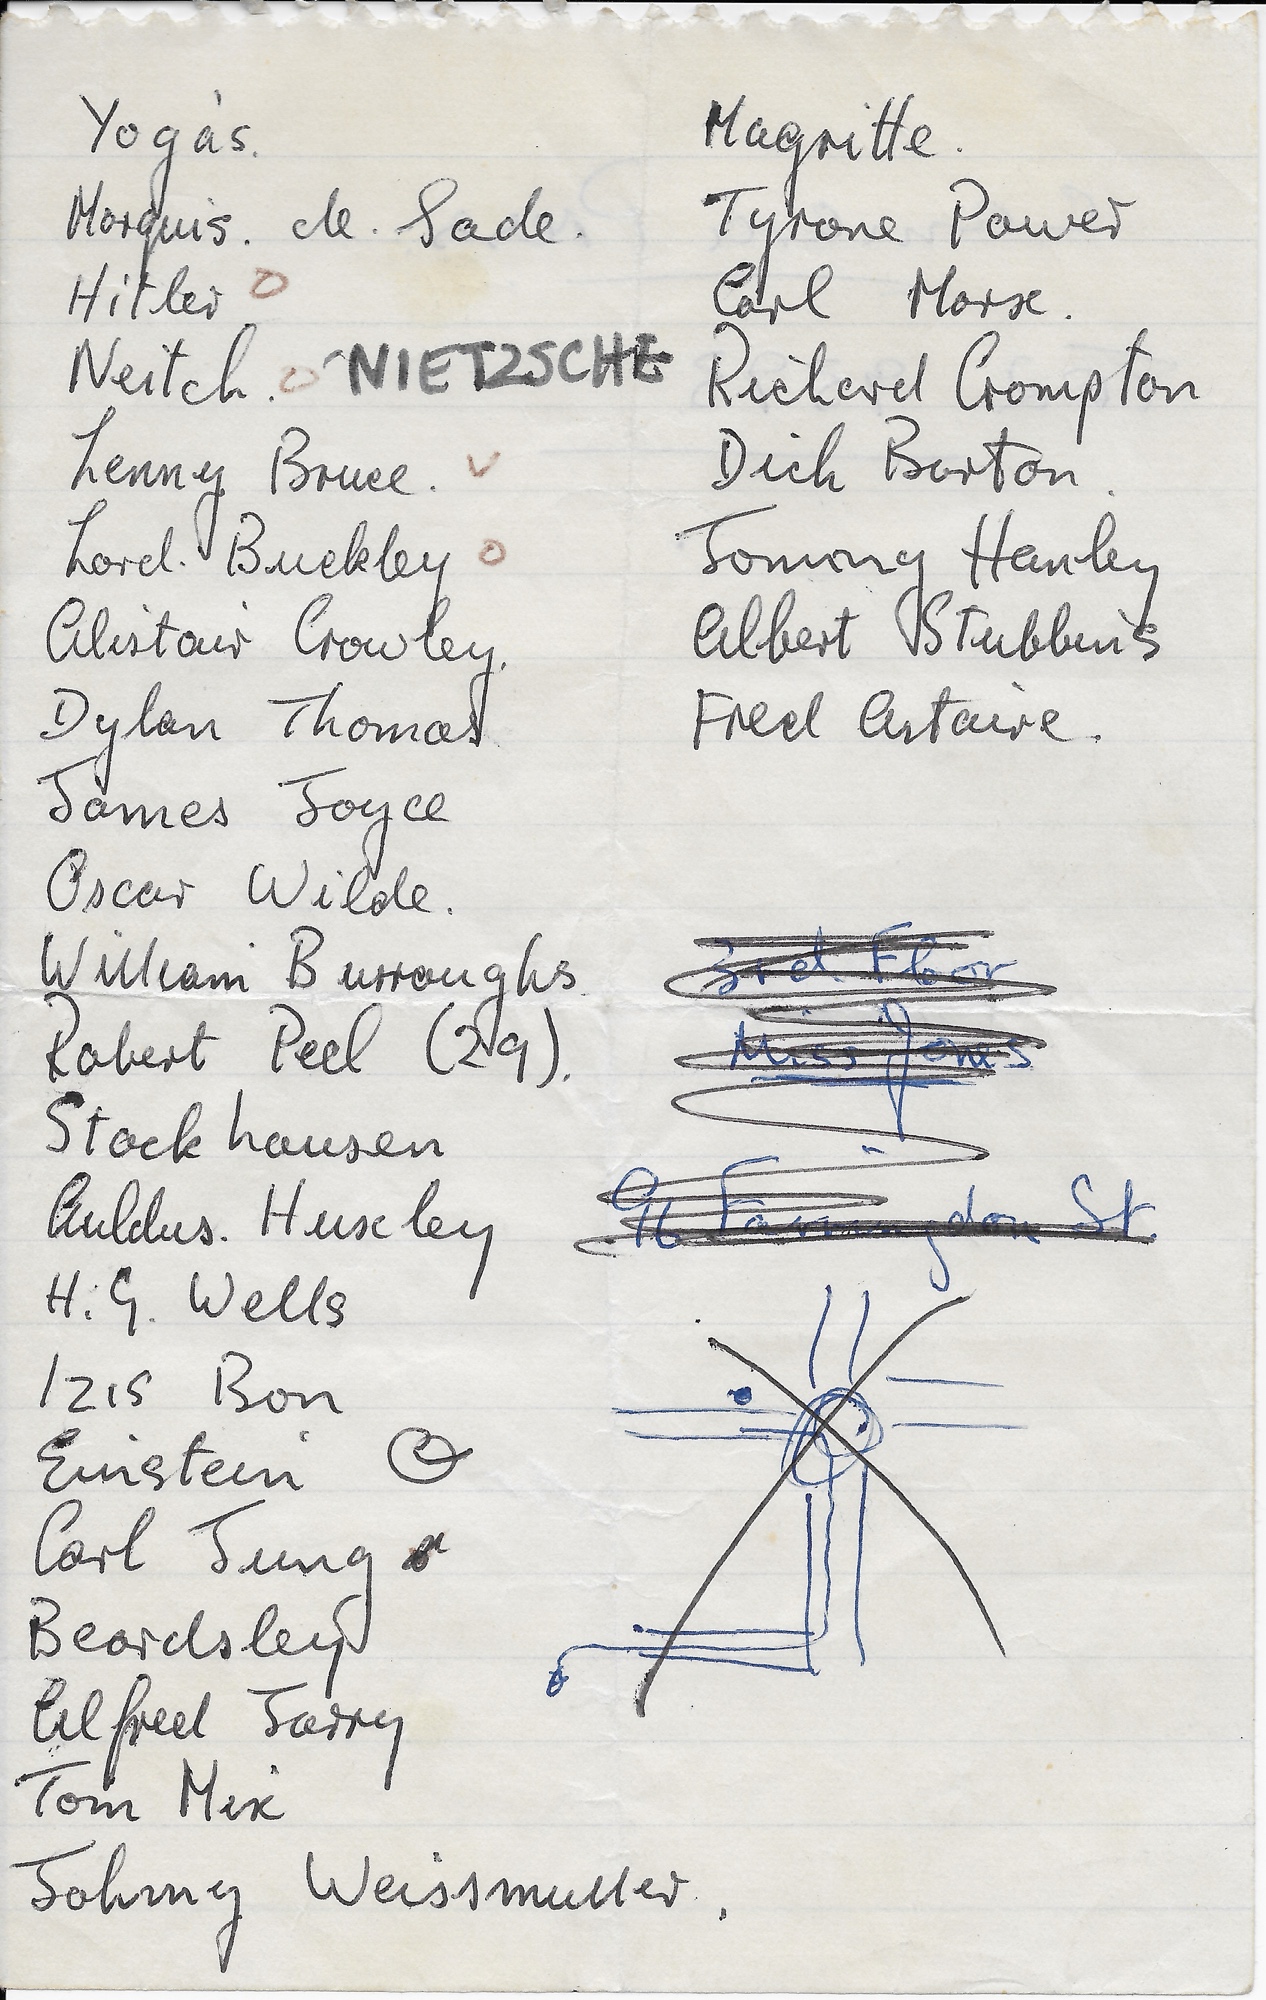 Yogas.
Marquis. de. Sade.
Hitler
Neitch. NIETZSCHE
Lenny Bruce.
Lord. Buckley
Alistair Crowley.
Dylan Thomas
James Joyce
Oscar Wilde.
William Burroughs.
Robert Peel (29).
Stockhausen
Auldus. Huxley
H.G. Wells
Izis Bon
Einstein
Carl Jung
Beardsley
Alfred Jarry
Tom Mix
Johnny Weissmuller.
Magritte.
Tyrone Power
Carl Marx.
Richard Crompton
Dick Barton.
Tommy Hanley
Albert Stubbins
Fred Astaire.
3rd Floor
Miss Jones
96 Farringdon St.